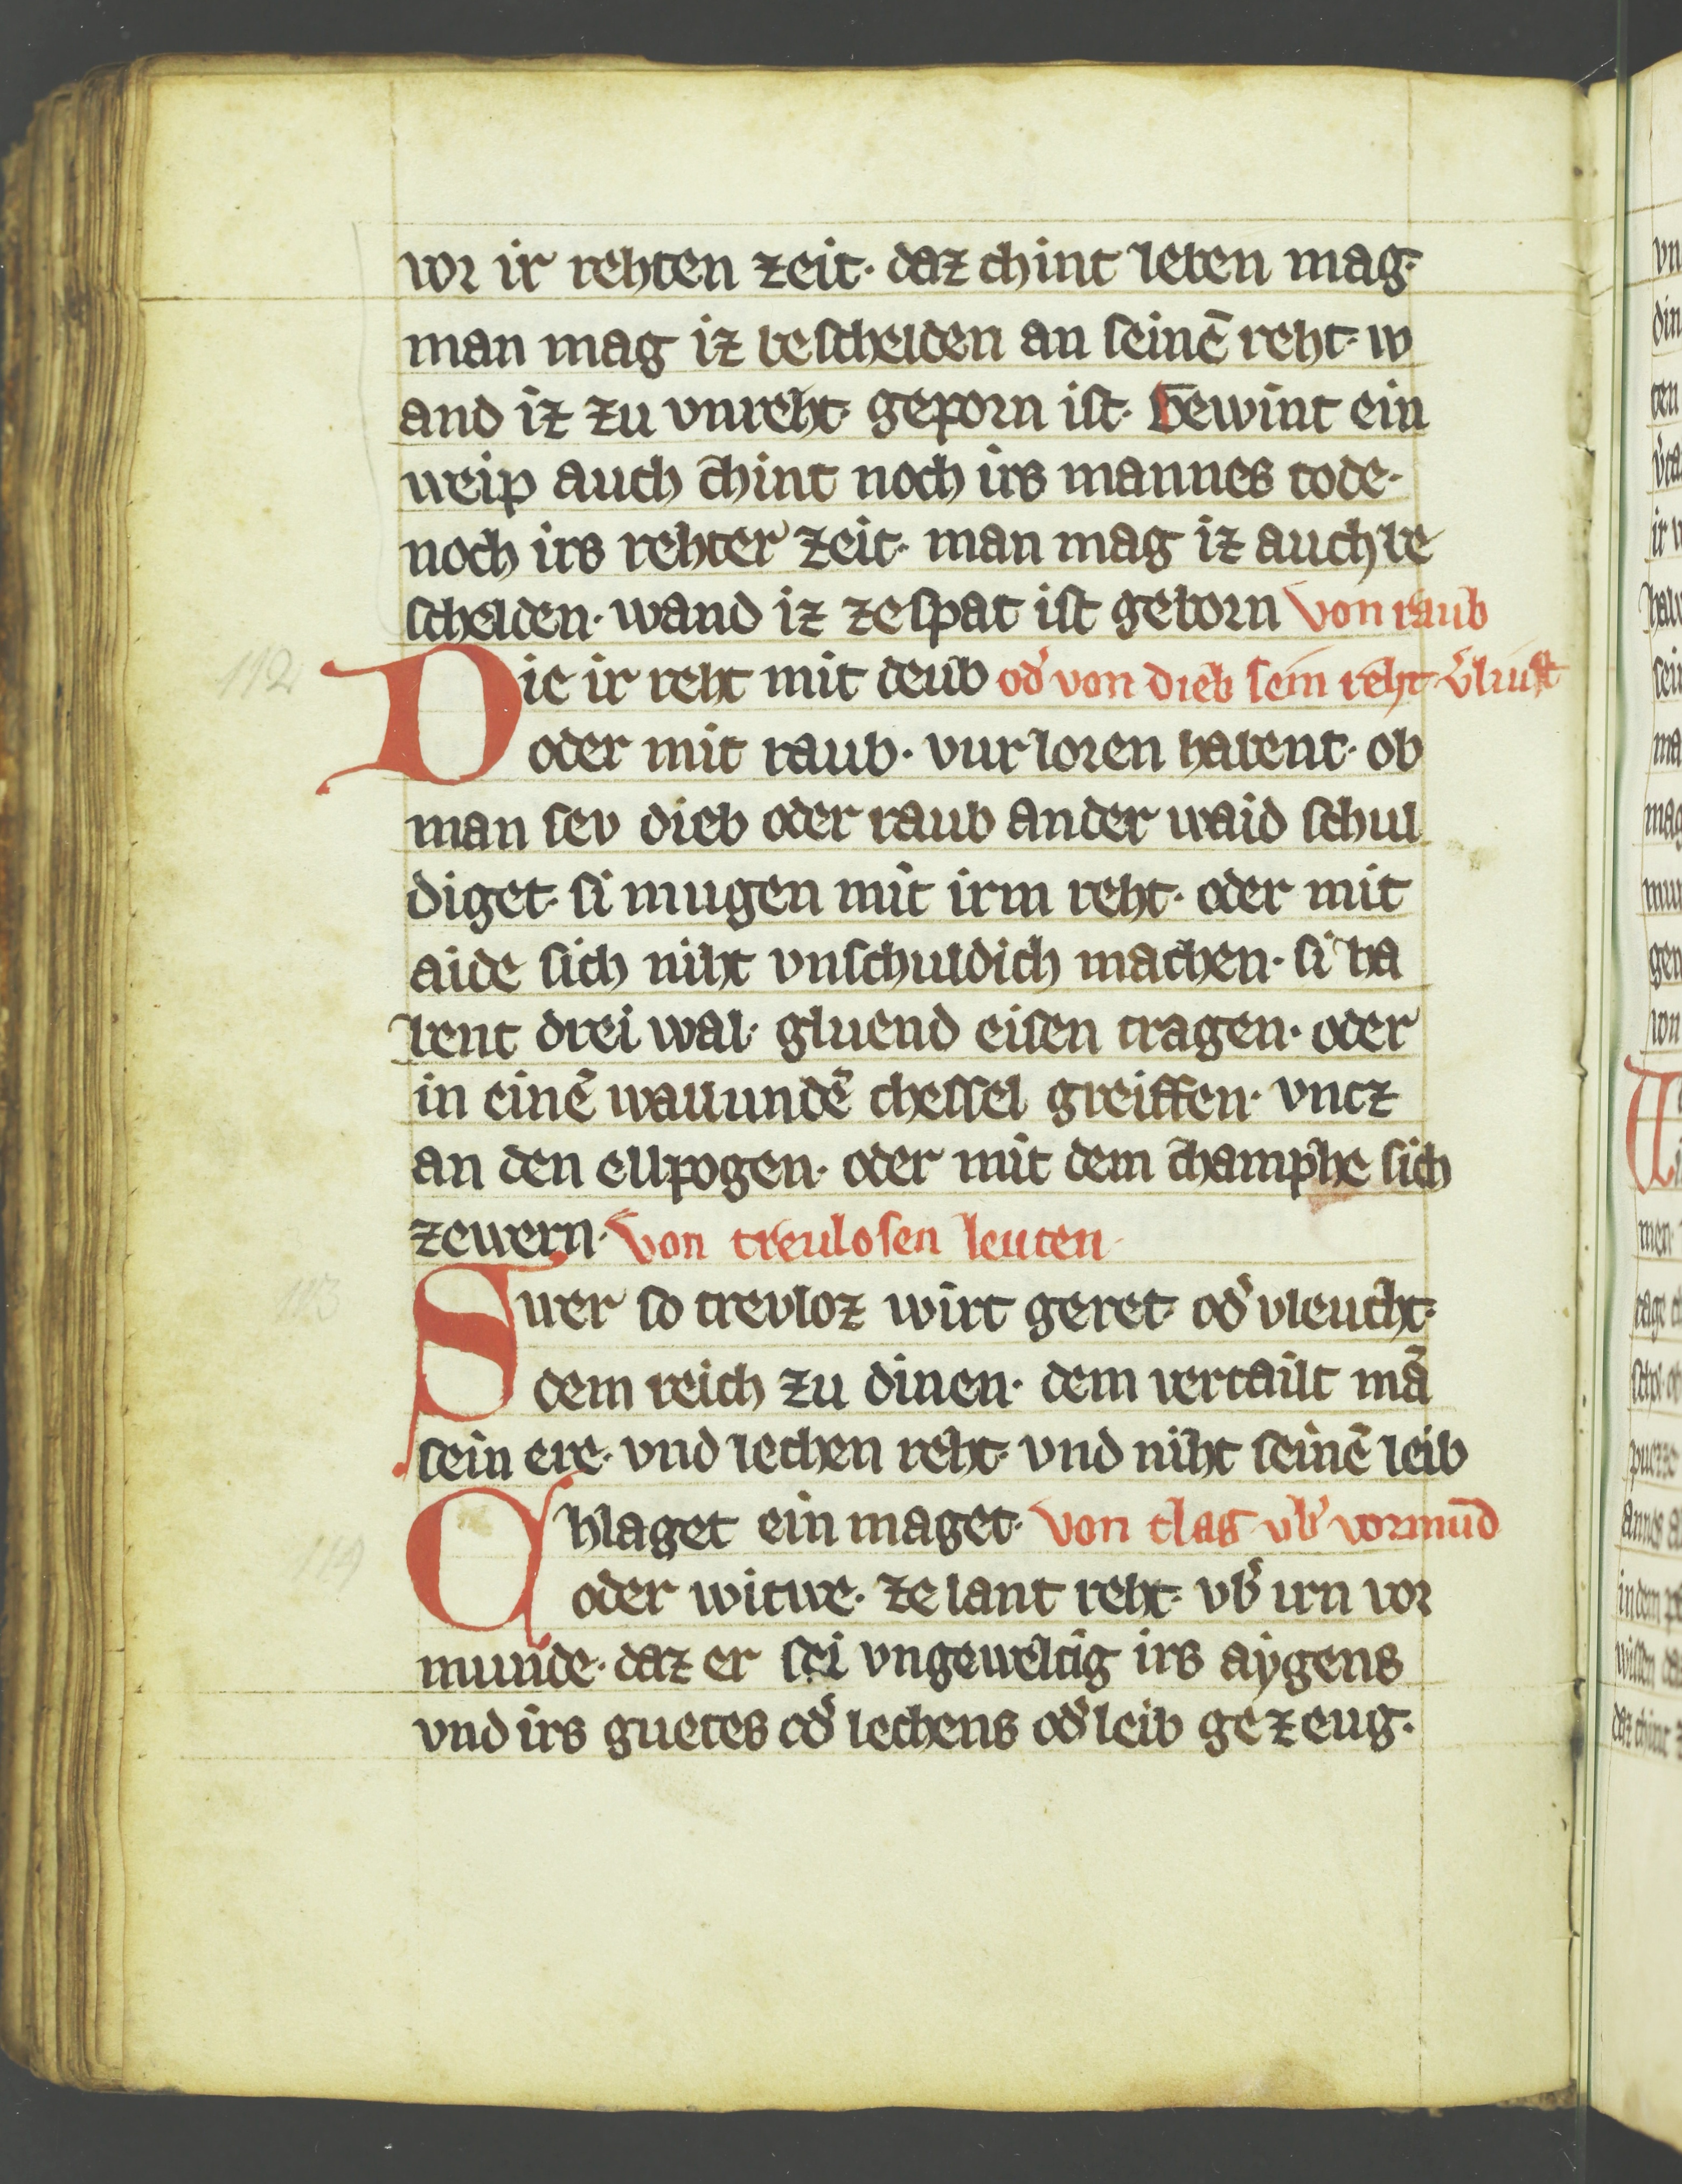 vor ir rehten zeit· daz chint leben mag·
man mag iz beschelden an seinē reht· w
and iz zu vnreht· geporn ist· Gewint ein
weip auch chint noch irs mannes tode·
noch irs rehter zeit· man mag iz auch be
schelden· wand iz ze spat ist geborn Von raub
112
Die ir reht mit deub od̾ von dieb sein reht v̾liust
oder mit raub· vurloren habent· ob
man sev dieb oder raub ander waid schul
diget· si mugen mit irm reht· oder mit
aide sich niht vnschuldich machen· si ha
bent drei wal· gluend eisen tragen· oder
in einē wallundē chessel greiffen· vncz
an den ellpogen· oder mit dem champhe sich
zewern· Von treulosen leuten·
113
Swer so trevloz wirt geret· od̾ vleucht·
dem reich zu dinen· dem vertailt mā
sein ere· vnd lechen reht· vnd niht seinē leib
114
Chlaget ein maget· Von clag vb̾ vormūd
oder witwe· ze lant reht· vb̾ irn vor
munde· daz er sei vngeweltig irs aÿgens
vnd irs guetes od̾ lechens od̾ leib gezeug·